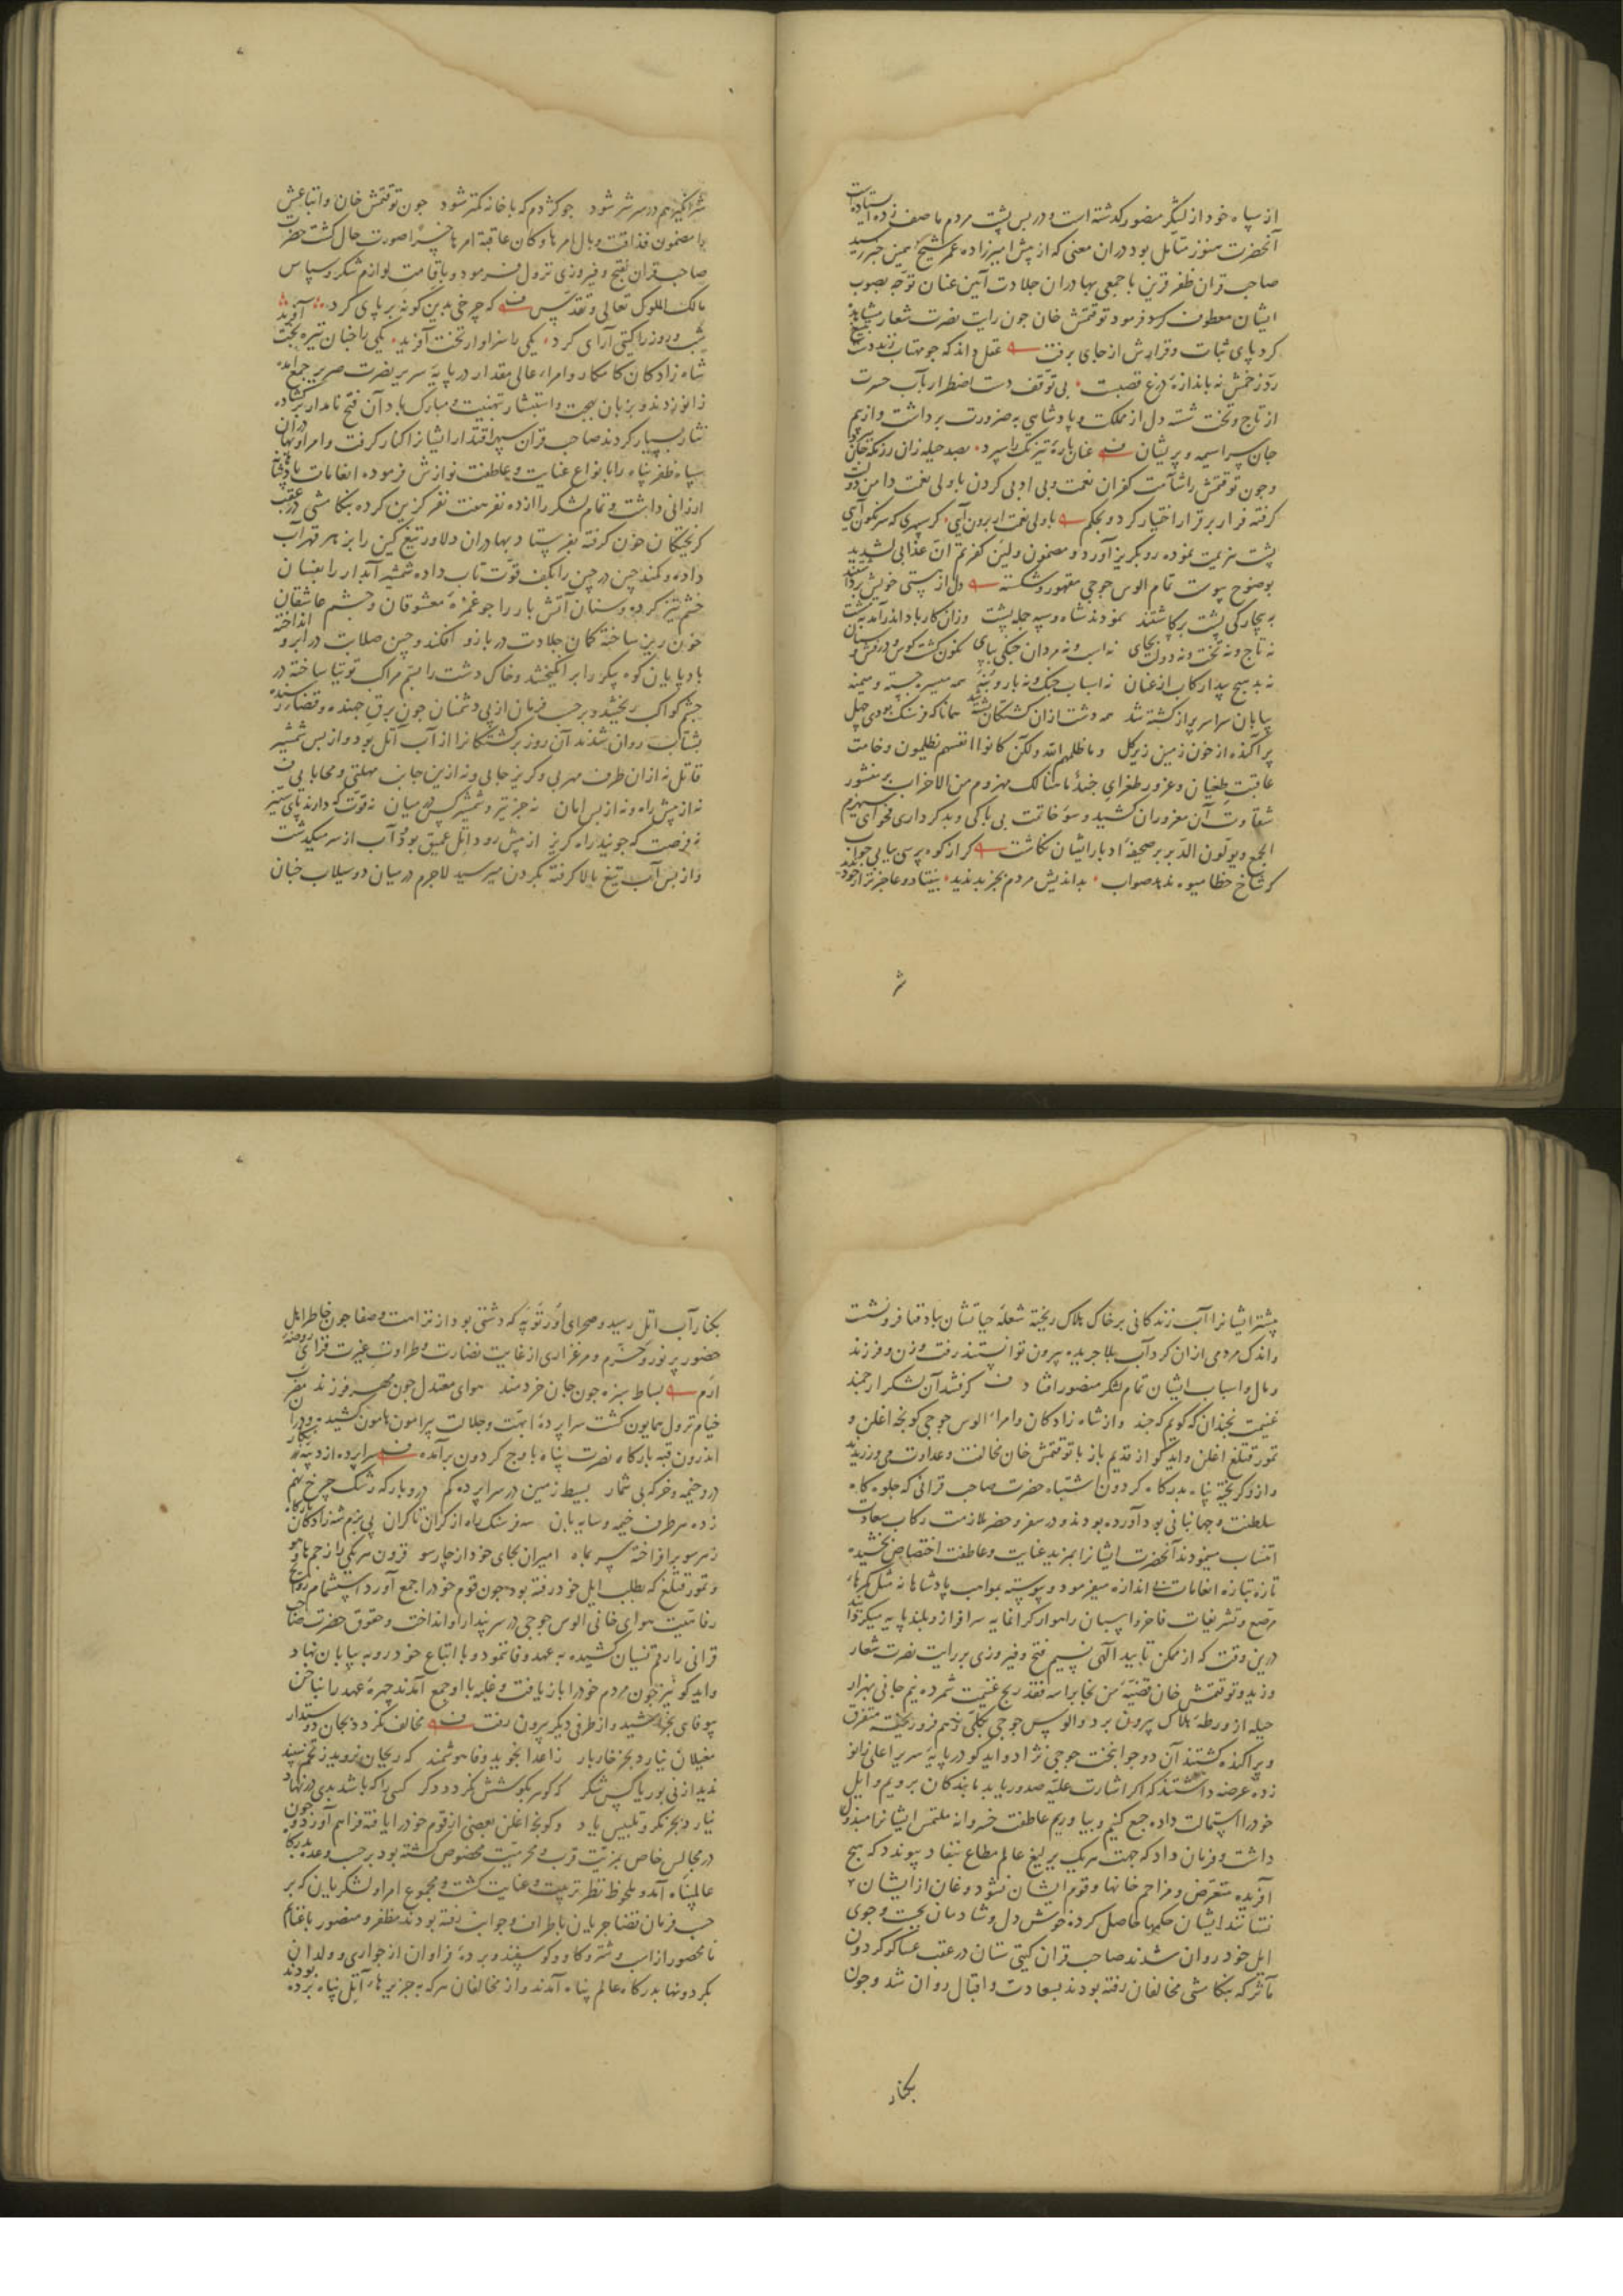 از سپاه خود از لشکر منصور گذشته است و در پس پشت مردم ما صف زده ایستاده است
آنحضرت هنوز متأمل بود در آن معنی که از پیش امیرزاده عمر شیخ همین خبر رسید
صاحب قران ظفر قرین با جمعی بهادران جلادت آیین عنان توجه بصوب
ایشان معطوف کرد فرمود توقتمش خان جون رایت نصرت شعار مشاهده
کرد پای ثبات و قرارش از جای برفت عقل داند که جو مهتاب زند دست تیغ
رد زخمش نه باندازه درع قصبست بی توقف دست اضطرار بآب حسرت
از تاج و تخت شسته دل از مملکت و پادشاهی به ضرورت برداشت و از بیم
جان سراسیمه و پریشان عنان باره تیزتک را سپرد بصد حیله زان رزمکه جان
وجون توقتمش را شآمت کفران نعمت و بی ادبی کردن با ولی نعمت دامن دولت
گرفته فرار بر قرار اختیار کرد و بحکم با ولی نعمت ار برون آیی گر سپهری که سرنگون آیی
پشت هزیمت نموده رو بگریز آورد و مضمون ولئن کفرتم ان عذابی لشدید
بوضوح پیوست تمام الوس جوجی مقهور و شکسته دل از هستی خویش برداشتند
به بیچارگی پشت برکاشتند نمودند شاه و سپه جمله پشت وزان کار باد اندر آمد بمشت
نه تاج و نه تخت و نه دولت بجای نه اسب و نه مردان جنکی بپای نکون کشت کوس و درفش و سنان
نه بد هیچ پیدا رکاب از عنان نه اسباب جنک و نه بار و بنه همه میسره جسته و میمنه
بیابان سراسر پر از کشته شد همه دشت ازان کشتگان پشته شد همانا که فرسنک بودی چهل
پراکنده از خون زمین زیر گل و ما ظلمهم الله ولکن کانوا انفسهم یظلمون وخامت
عاقبت طغیان و غرور طغرای جند ما هنالک مهزوم من الاحزاب بر منشور
شقاوت آن مغروران کشید و سوء خاتمت بی باکی و بدکرداری فحوای سیهزم
الجمع و یولون الدبر بر صحیفه ادبار ایشان نکاشت کر از کوه پرسی بیابی جواب
که شاخ خطا میوه ندهد صواب بد اندیش مردم بجز بد ندید بیفتاد و عاجزتر از خود ندید
شر
شر انگیز هم در سر شر شود جو کژدم که با خانه کمتر شود جون توقتمش خان و اتباعش
را مضمون فذاقت وبال امرها و کان عاقبة امرها خسرا صورت حال کشت حضرت
صاحب قران بفتح و فیروزی نزول فرمود و باقامت لوازم شکر و سپاس
مالک الملوک تعالی و تقدس که چرخی بدین کونه بر پای کرد
شب و روز را کیتی آرای کرد یکی را سزاوار تخت آفرید یکی را جنان تیره بخت آفرید
شاه زادکان کامکار و امراء عالی مقدار در پایه سریر نصرت مصیر جمع آمده
زانو زدند و بزبان بهجت و استبشار تهنیت و مبارک باد آن فتح نامدار برکشاده
نثار بسیار کردند صاحب قران سپهر اقتدار ایشانرا کنار گرفت و امرا و نویینان
سپاه ظفر پناه را بانواع عنایت و عاطفت نوازش فرموده انعامات پادشاهانه
ارزانی داشت و تمام لشکر را از ده نفر هفت نفر گزین کرده بتکامشی در عقب
گریختگان خون گرفته بفرستاد بهادران دلاور تیغ کین را بزهر قهر آب
داده و کمند چین در چین را بکف قوت تاب داده شمشیر آبدار را بفسان
خشم تیز کرده و سنان آتش بار را جو غمزه معشوقان و چشم عاشقان
خون ریز ساخته کمان جلادت در بازو افکنده و چین صلابت در ابرو انداخته
بادپایان کوه پیکر را بر انگیختند و خاک دشت را بسم مراکب توتیا ساخته در
چشم کواکب ریختند و بر حسب فرمان از پی دشمنان چون برق جهنده و قضاء رسنده
بشتاب روان شدند آن روز برکشتکانرا از آب آتل بود و از پس شمشیر
قاتل نه از آن طرف مهربی و گریز جایی و نه ازین جانب مهلتی و محابایی
نه از پیش راه و نه از پس امان نه جز تیر و شمشیر کس در میان نه قوت که دارند پای ستیز
نه فرصت که جویند راه گریز از پیش رود اتل عمیق بود و آب از سر میگذشت
و از پس آب تیغ بالا گرفته بگردن میرسید لاجرم در میان دو سیلاب جنان
بیشتر ایشانرا آب زندگانی بر خاک هلاک ریخته شعله حیاتشان بباد فنا فرو نشست
و اندک مردی ازان گرداب بلا جریده بیرون توانستند رفت و زن و فرزند
و مال و اسباب ایشان تمام لشکر منصور افتاد گرفتند آن لشکر ارجمند
غنیمت بجندان که گویم که جند و از شاه زادگان و امراء الوس جوجی کونجه اغلن و
تمور قتلغ اغلن و ایدکو از قدیم باز با توقتمش خان مخالفت و عداوت می ورزیدند
و ازو گریخته پناه بدرگاه گردون اشتباه حضرت صاحب قرانی که جلوه گاه
سلطنت و جهانبانی بود آورده بودند و در سفر و حضر ملازمت رکاب سعادت
انتساب مینمودند آنحضرت ایشانرا بمزید عنایت و عاطفت اختصاص بخشیده
تازه بتازه انعامات بی اندازه میفرمود و پیوسته بمواهب پادشاهانه مثل کمرهاء
مرصع و تشریفات فاخر و اسبان راهوار گرانمایه سرافراز و بلند پایه میگردانید
درین وقت که از مکمن تأیید آلهی نسیم فتح و فیروزی بر رایت نصرت شعار
وزید و توقتمش خان قضیه من نجا براسه فقد ربح غنیمت شمرده نیم جانی بهزار
حیله از ورطه هلاک بیرون برد و الوس جوجی بکلی از هم فرو ریخته متفرق
و پراکنده کشتند آن دو جوانبخت جوجی نژاد و ایدکو در پایه سریر اعلی زانو
زده عرضه داشتند که اگر اشارت علیه صدور یابد ما بندگان برویم و ایل
خود را استمالت داده جمع کنیم و بیاوریم عاطفت خسروانه ملتمس ایشانرا مبذول
داشت و فرمان داد که جهت هر یک یرلیغ عالم مطاع بنفاد پیوندد که هیچ
آفریده متعرض و مزاحم خانها و قوم ایشان نشود و غان از ایشان
نستانند ایشان حکمها حاصل کرده خوش دل و شادمان بجست و جوی
ایل خود روان شدند صاحب قران گیتی ستان در عقب عساکر گردون
مآثر که بتکامشی مخالفان رفته بودند بسعادت و اقبال روان شد وجون
بکنار
بکنار آب اتل رسید و صحرای اورتوپه که دشتی بود از نزاهت و صفا جون خاطر اهل
حضور پر نور و خرم و مرغزاری از غایت نضارت و طراوت غیرت فزای روضه
ارم بساط سبزه جون جان خردمند هوای معتدل جون مهر فرزند مضرب
خیام نزول همایون کشت سراپرده ابهت و جلالت پیرامون هامون کشیده
اندرون قبه بارگاه نصرت پناه باوج گردون برآمده سراپرده از دیبه
درو خیمه و خرگه بی شمار بسیط زمین در سراپرده گم درو بارگه رشک چرخ نهم
زده هر طرف خیمه و سایه بان سه فرسنگ راه از کران تا کران پی بزم شه زادگان بارگاه
ز هر سو بر افراخته سر بماه امیران بجای خود از چارسو فزون هر یکی را ز جم
و تمور قتلغ که بطلب ایل خود رفته بود جون قوم خود را جمع آورد استشمام روایح
رفاهیت هوای خانی الوس جوجی در سر پندار او انداخت و حقوق حضرت صاحب
قرانی را رقم نسیان کشیده به عهد وفا ننمود و با اتباع خود رو به بیابان نهاد
و ایدکو نیز جون مردم خود را باز یافت و غلبه با او جمع آمدند چهره عهد را بناخن
بیوفایی بخراشید و از طرفی دیگر بیرون رفت مخالف نگردد بجان دوستدار
مغیلان نیارد بجز خار بار ز اعدا نجوید وفا هوشمند که ریحان نروید ز تخم سپند
ندید از نی بوریا کس شکر که گوهر بکوشش نگردد دگر کسی را که باشد بدی در نهاد
نیارد بجز مکر و تلبیس یاد و کونجه اغلن بعضی از قوم خود را یافته فراهم آورد و جون
در مجالس خاص بمزیت قرب و محرمیت مخصوص کشته بود بر حسب وعده بدرگاه
عالم پناه آمد و ملحوظ نظر تربیت و عنایت کشت و مجموع امرا و لشکریان که بر
حسب فرمان قضا جریان باطراف و جوانب رفته بودند مظفر و منصور با غنایم
نامحصور از اسب و شتر و کاو و گوسفند و برده فراوان از جواری و ولدان
بکردونها بدرگاه عالم پناه آمدند و از مخالفان هر که به جزیرهاء آتل پناه برده بودند